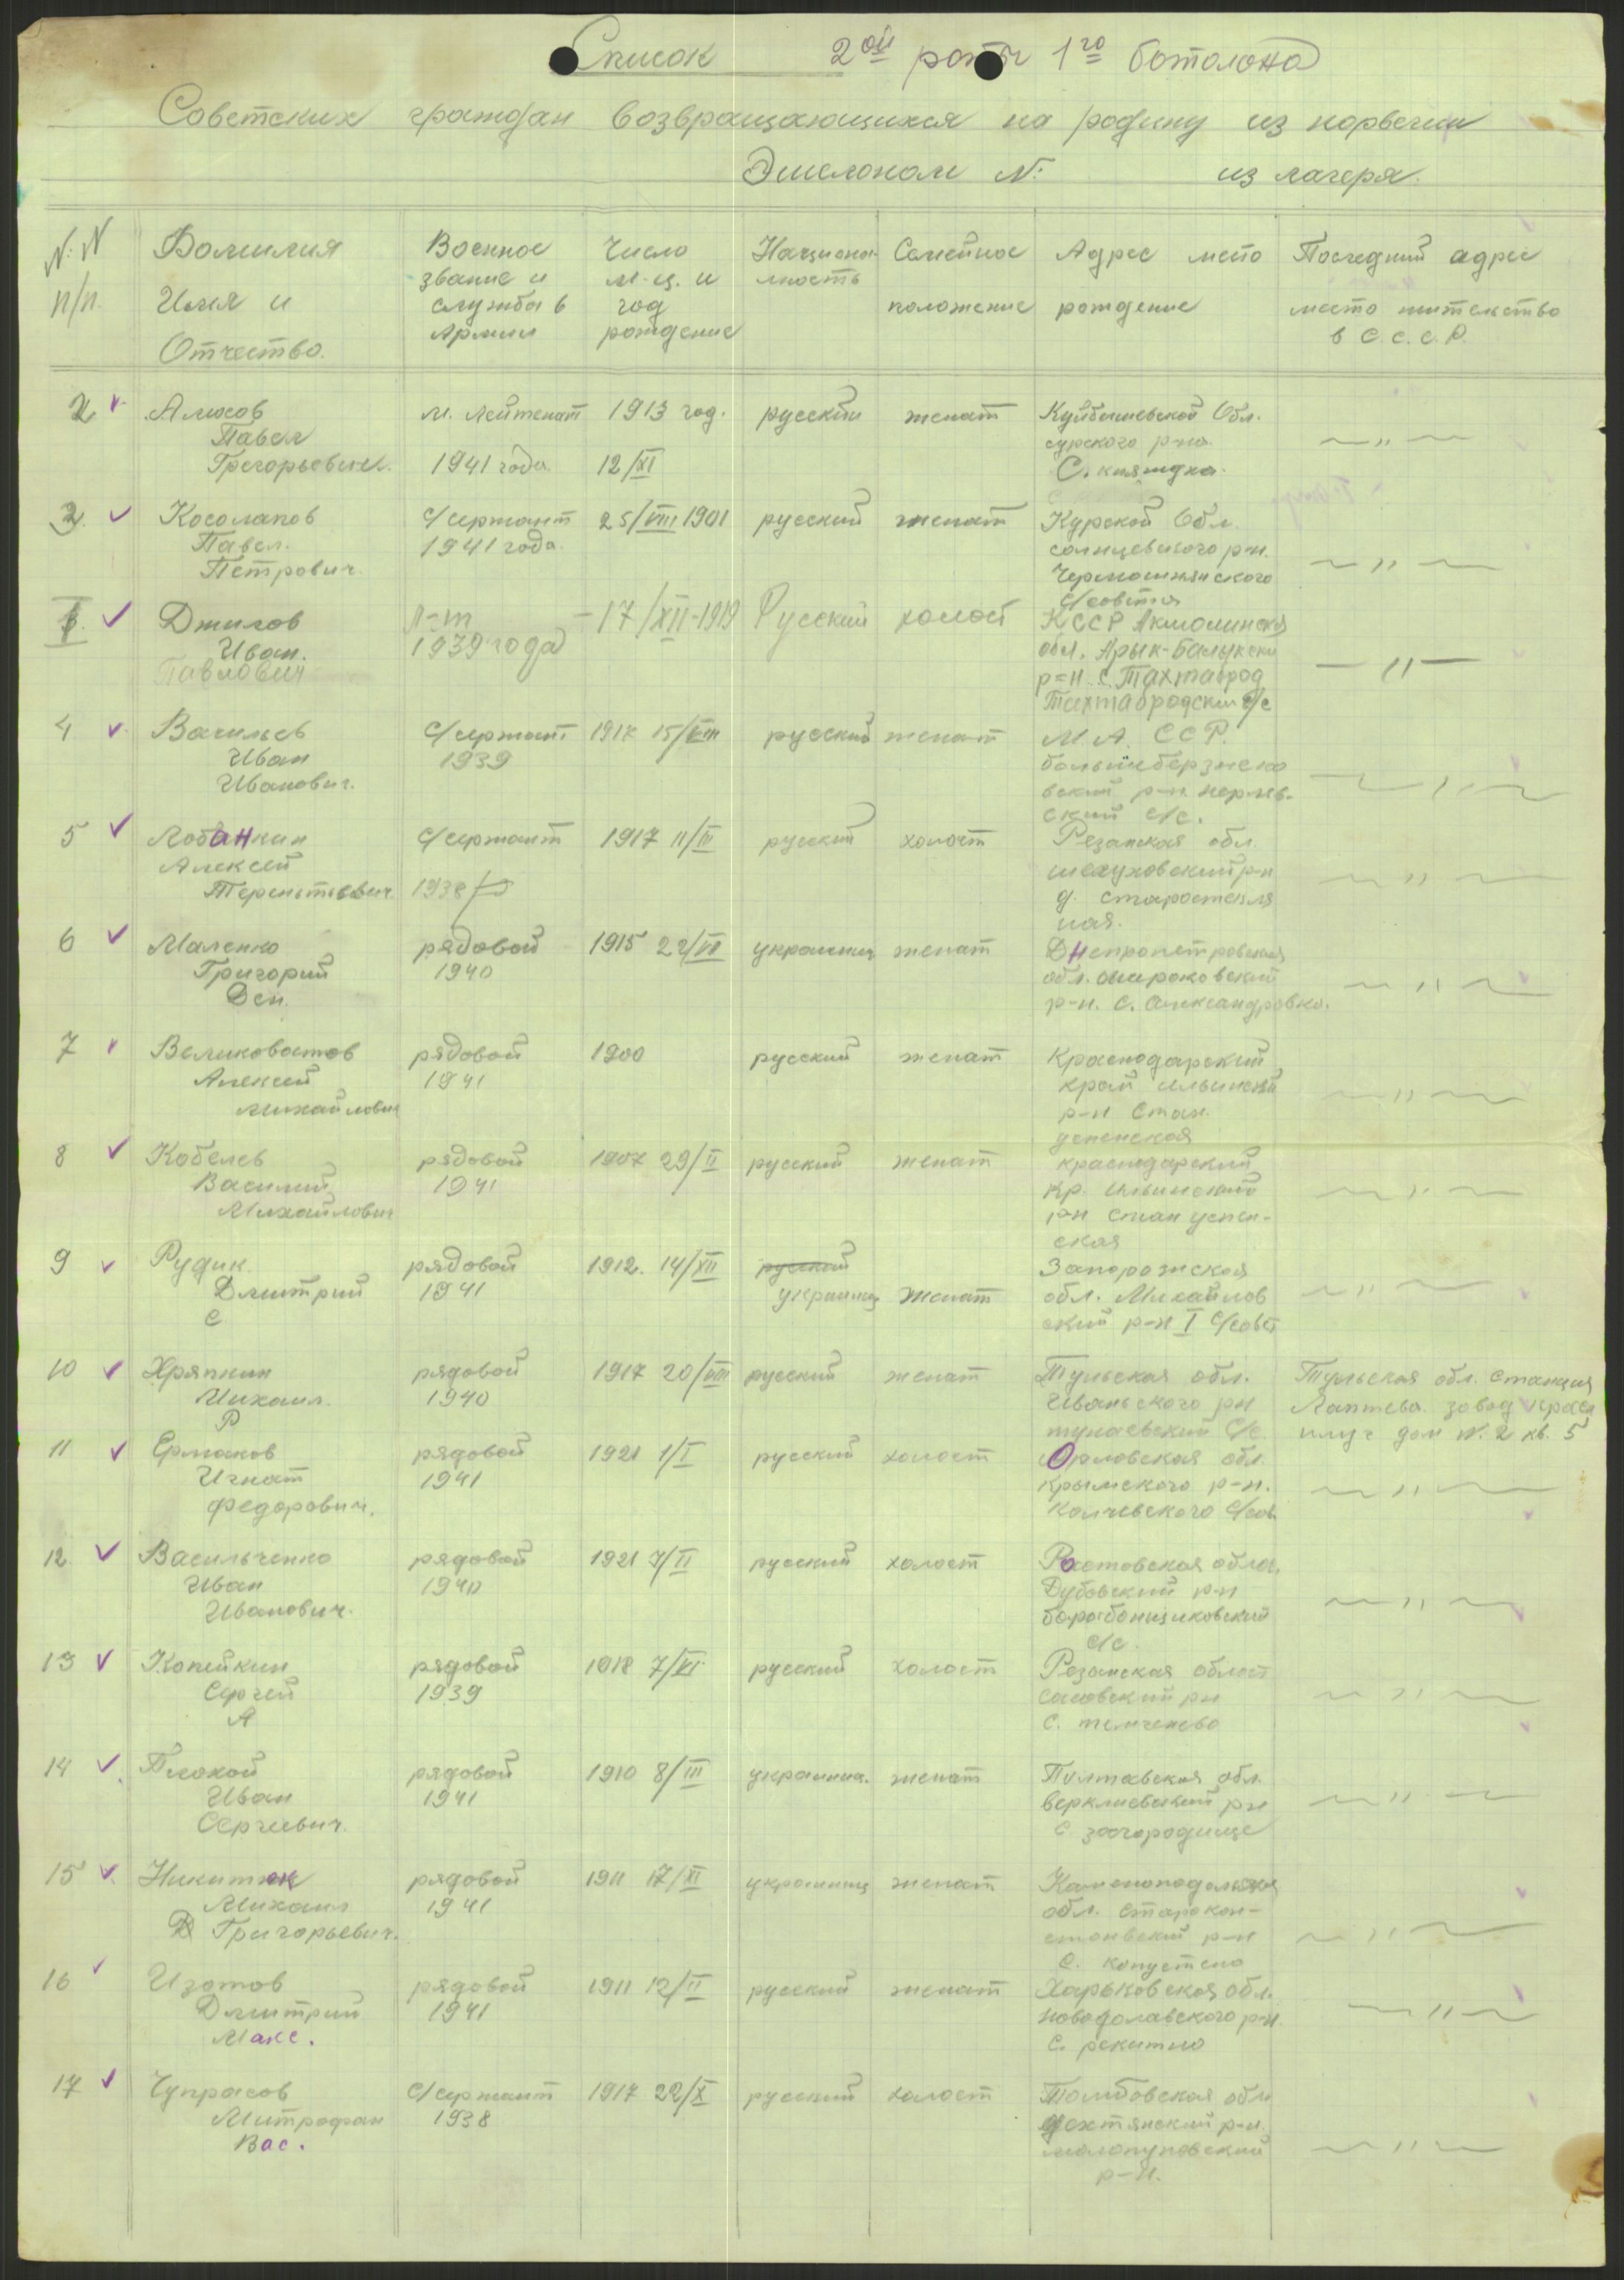 Список 2ой роты 1гоботолона
Советских граждан возвращающихся на родину из норвегии
Эшелоном №: из лагеря.
№ N п/п. Фомилия Имя и Отчество.
Военное звание и служба в Армии
Число м-ц. и год рождение
Национольность
Семейное положение
Адрес место рождение
Последний адрес место жительство в С.С.С.Р.
2 Павел Григорьевич. м. лейтенат 1941 года. 1913 год. 12/XI русский женат Куйбышевской Обл. сурского р-на. —〃—
Косолапов Павел. Петрович. с/сержант 1941 года. 25/VIII 1901 русский женат Курской Обл. солнцевского р-н. с/совета —〃—
Джигов Иван. Павлович Л-т 1939 года – 17/XII-1919 Русский холост КССР Акмолинская обл. Арык-Балыкски р-н с. Тахтаброд Тахтабродский с/с —〃—
4 Васильев Иван Иванович. с/сержант. 1939 15/VIII русский женат М.А. ССР. ский с/с. —〃—
5 Лобанкин Алексей Терентьевич с/сержант 1938 1917 11/III русский холост Резанская обл. р-н д. —〃—
6 Маленко Григорий Дем. рядовой 1940 1915 22/VII украинец женат Днепропетровская обл. широковский р-н. с. Александровка. —〃—
7 Великоватов Алексей Михайлович рядовой 1941 1900 русский женат Краснодарский край р-н Стан. —〃—
8 Кобелев Василий Михайлович рядовой 1941 1907 29/II русский женат краснодарский кр. р-н стан успен-ская —〃—
9 Рудик. Дмитрий С рядовой 1941 1912. 14/XII русский украинец женат Запорожская обл. Михайловский р-н I с/совет —〃—
10 Хряпкин Михаил. Р рядовой 1940 1917 20/VIII русский женат Тульская обл. с/с. Тульская обл. станция Лаптева. завод дом №. 2 кв. 5
11 Ермаков Игнат Федорович. рядовой 1941 1921 1/I русский холост Орловская обл. крымского р-н. с/сов. —〃—
12. Васильченко Иван Иванович. рядовой 1940 1921 7/II русский холост Ростовская облос. Дубовский р-н с/с. —〃—
13 Копейкин Сергей А рядовой 1939 1918 7/VI русский холост Резанская област сасовский р-н с. темгенево —〃—
14 Плохой Иван Сергиевич. рядовой 1941 1910 8/III украинец. женат Полтавская обл. р-н с —〃—
15 Михаил Григорьевич. рядовой 1941 1911 17/XI украинец женат обл. старокон-станвский р-н с. —〃—
16 Изотов Дмитрий Макс. рядовой 1941 1911 12/II русский женат Харьковская обл. р-н. с. рекитно —〃—
17 Чупрасов Митрофан Вас. с/сержант 1938 1917 22/X русский холост Томбовская обл р-н. р-н. —〃—